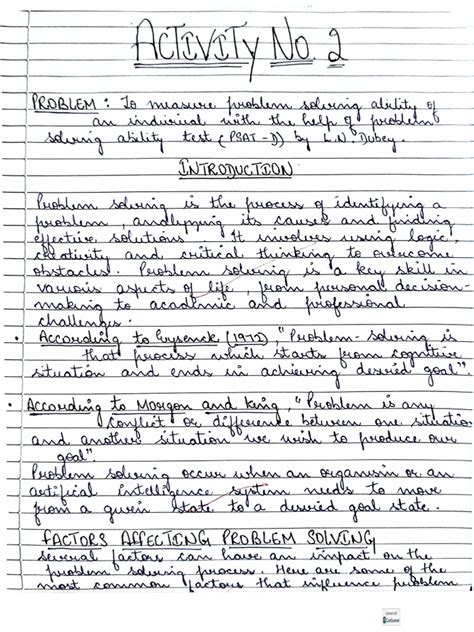 ACTIVITY No. 2
PROBLEM : To measure problem solving ability of
an indiviral with the help of problem
solving ability test (PSAT-D) by L.N. Dubey.
INTRODUCTION
Problem solving is the process of identifying a
problem, analyzing its causes and finding
effective solutions. It involves using logic,
creativity and critical thinking to overcome
obstacles. Problem solving is a key skill in
various aspects of life, from personal decision-
making to academic and professional
challenges.
• According to Eysenck (1972), "Problem-solving is
that process which starts from cognitive
situation and ends in achieving desried goal".
• According to Morgon and King, "Problem is any
conflict or difference between one situation
and another situation we wish to produce our
goal"
Problem solving occur when an organism or an
artifical intelligence system needs to move
from a given state to a desried goal state.
FACTORS AFFECTING PROBLEM SOLVING
Several factors can have an impact on the
problem solving process. Here are some of the
most common factors that influence problem
CamScanner